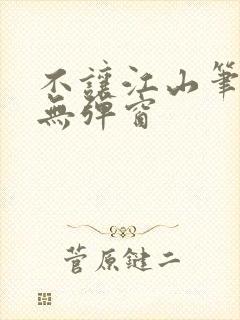 不讓江山筆
無彈窗
菅原鍵二